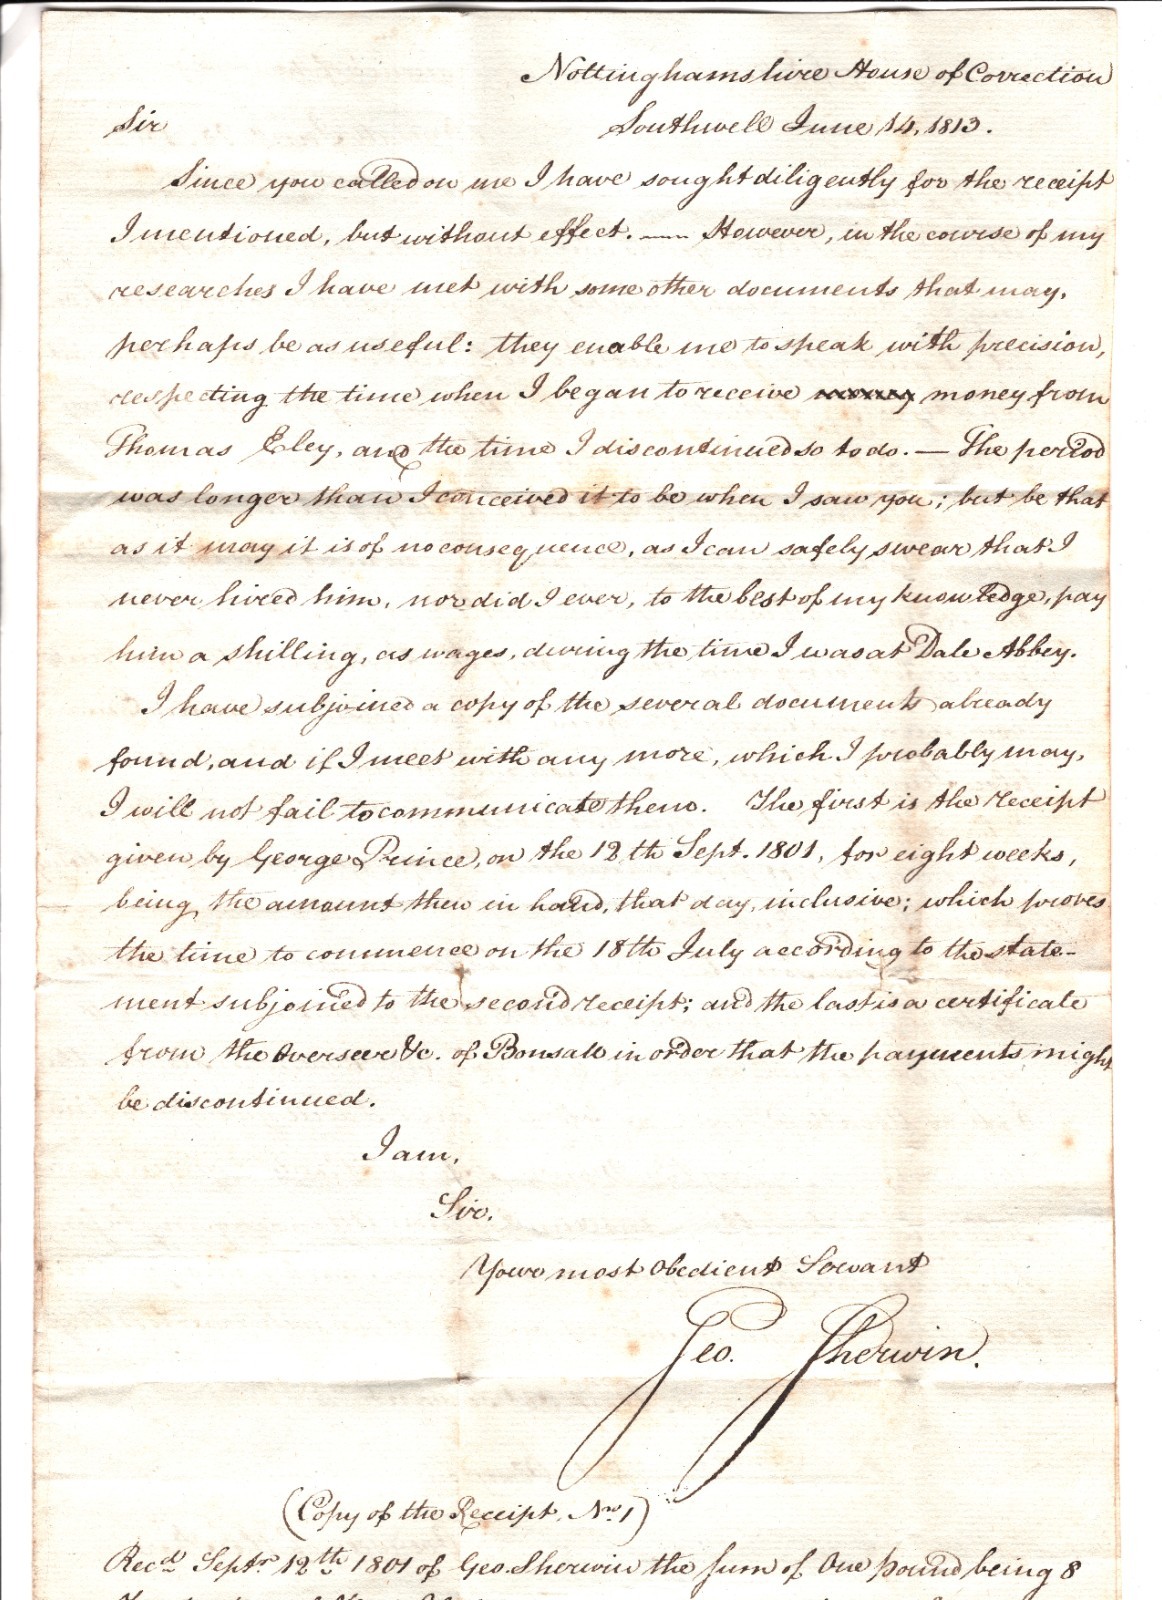 Nottinghamshire House of Correction
Sir Southwell June 14, 1813.
Since you called on me I have sought diligently for the receipt
I mentioned, but without effect. — However, in the course of my
researches I have met with some other documents that may,
perhaps be as useful: they enable me to speak with precision,
respecting the time when I began to receive money from
Thomas Eley, and the time I discontinued so to do. — The period
was longer than I conceived it to be when I saw you; but be that
as it may it is of no consequence, as I can safely swear that I
never hired him, nor did I ever, to the best of my knowledge, pay
him a shilling, as wages, during the time I was at Dale Abbey.
I have subjoined a copy of the several documents already
found, and if I meet with any more, which I probably may,
I will not fail to communicate them. The first is the receipt
given by George Prince, on the 12th Sept. 1801, for eight weeks,
being the amount then in hand, that day, inclusive; which proves
the time to commence on the 18th July according to the state-
ment subjoined to the second receipt; and the last is a certificate
from the Overseer &c. of Bonsale in order that the payments might
be discontinued.
I am,
Sir,
Your most Obedient Servant
Geo. Sherwin.
(Copy of the Receipt, No. 1)
Recd. Septr. 12th 1801 of Geo. Sherwin the sum of One pound being 8